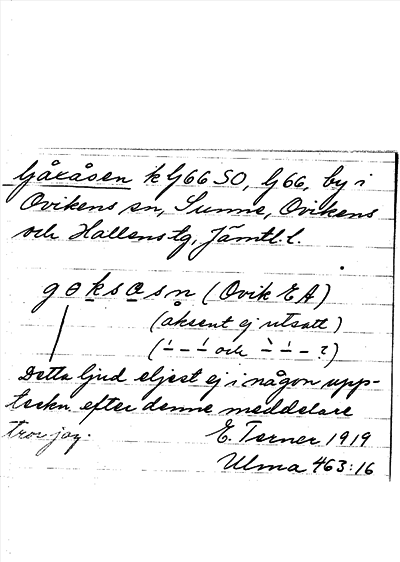 Gåxåsen k G66 SO, G66, by i
Ovikens sn, Sunne, Ovikens
och Hallens tg, Jämtl. l.
goksɑsn (Ovik E A)
(aksent ej utsatt)
(´ – ´ och ` ´ – ?)
Detta ljud eljest ej i någon upp-
teckn. efter denne meddelare
tror jag.
E. Terner 1919
Ulma 463:16